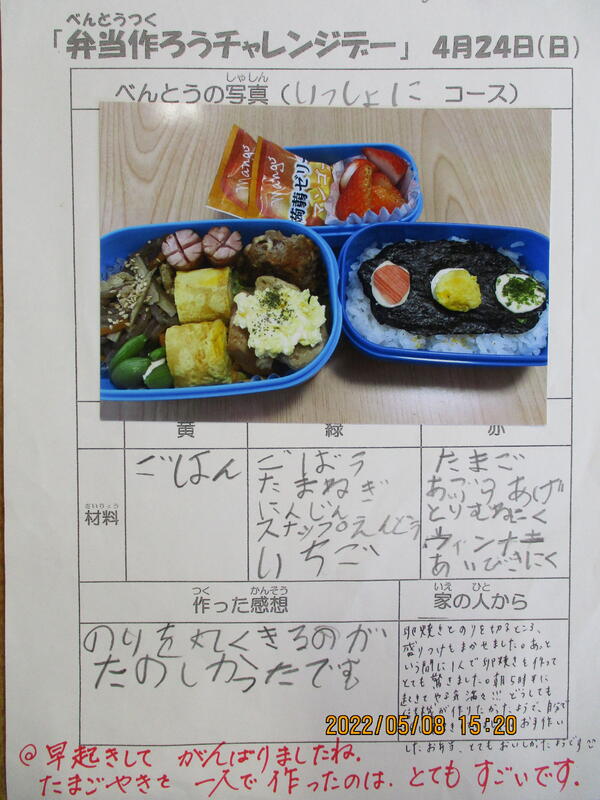 べんとうつく
「弁当作ろうチャレンジデー」 4月24日(日)
しゃしん
べんとうの写真(いっしょに コース)
Mango
Mango
蒟蒻ゼリー
マンゴー
黄 緑 赤
ざいりょう
材料
ごはん
ごぼう
たまねぎ
にんじん
スナップえんどう
いちご
たまご
あぶらあげ
とりむねにく
ウィンナー
あいびきにく
つく かんそう
作った感想
いえ ひと
家の人から
のりを丸くきるのが
たのしかったです
卵焼きとのりを切るところ、
盛りつけをまかせました。あっと
いう間に1人で卵焼きを作って
とても驚きました。朝5時半に
起きてやる気満々!!! どうしても
が作りたかったようで、自分で
お手伝い
したお弁当、とてもおいしかったようです
2022/05/08 15:20
◎早起きして がんばりましたね。
たまごやきを 一人で作ったのは、とても すごいです。